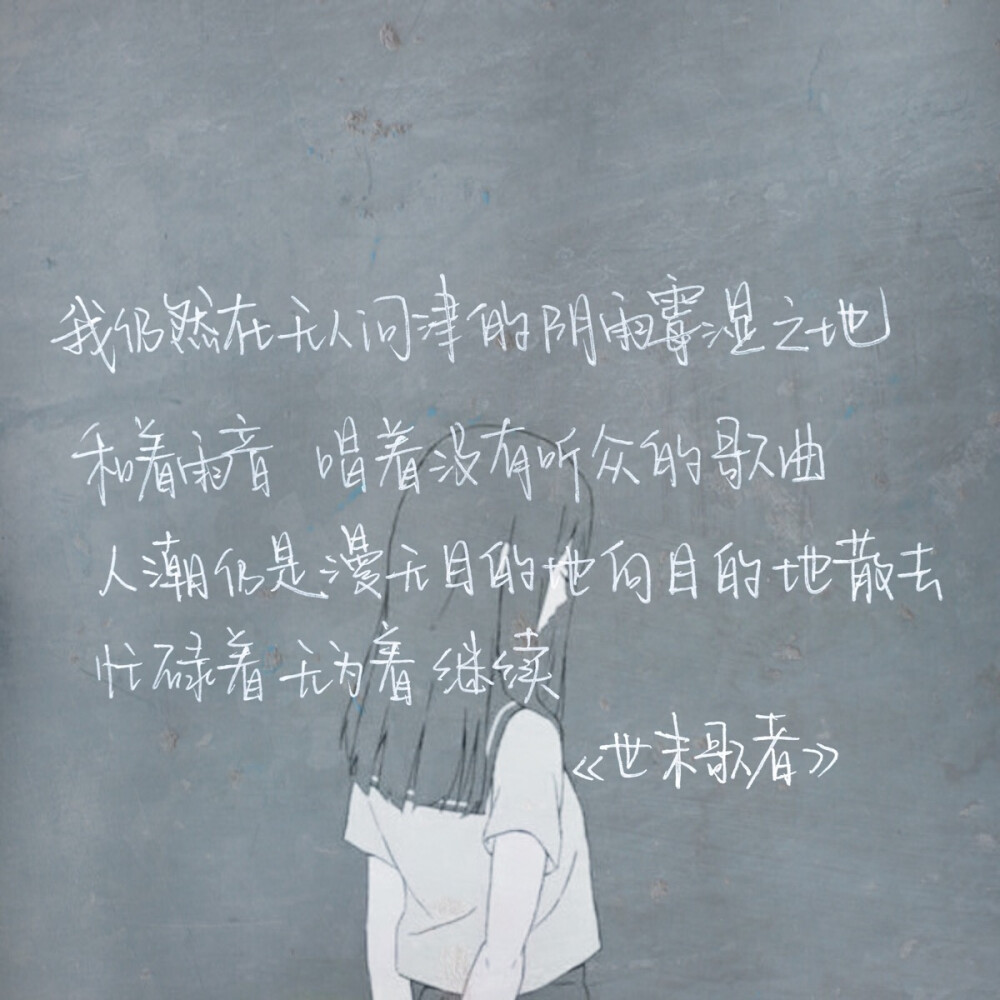 我仍然在无人问津的阴雨霉湿之地
和着雨音 唱着没有听众的歌曲
人潮仍是漫无目的地向目的地散去
忙碌着无为着继续
《世末歌者》